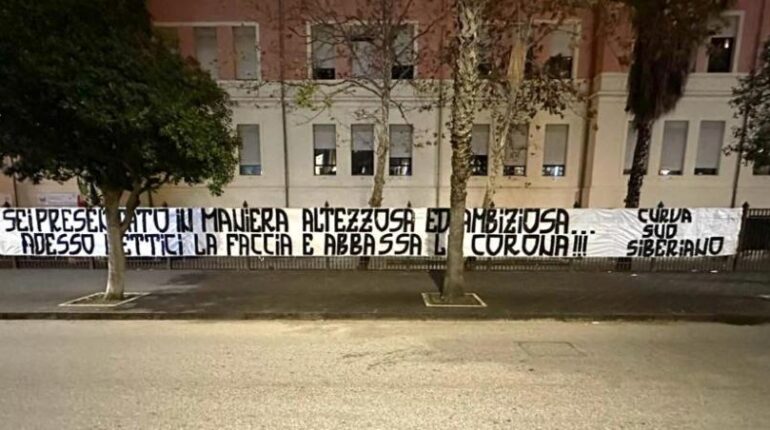 SEI PRESENTATO IN MANIERA ALTEZZOSA ED AMBIZIOSA...
ADESSO METTICI LA FACCIA E ABBASSA LA CORONA!!!
CURVA
SUD
SIBERIANO